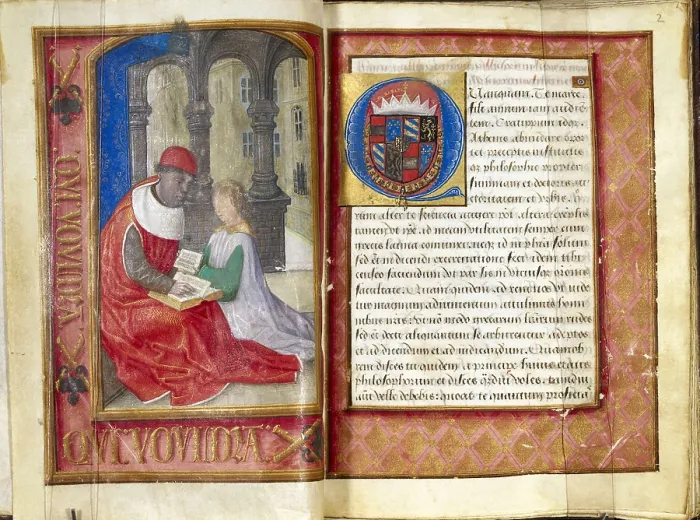 2
QVI VOVLDRA
QVI VOVLDRA
Q
Uanquam. Te marce.
fili annum iam audi
tem. Cratippum idqz.
Athenis abundare opor
tet preceptis institutis
qz philosophie propter
summam et doctoris auc
toritatem et vrbis.
rum alter te scientia augere pot. altera exemplis
tamen vt ipse. ad meam vtilitatem semper cum
grecis latina coniunxi. neqz id in phia solum
sed et in dicendi exercitatione feci. idem tibi
censeo faciendum
facultate. Quam quidem ad rem nos vt vide
mur magnum adiumentum attulimus homi
nibus nris. vt non modo grecarum lrarum rudes
sed et docti aliquantum se arbitrentur adeptos
et ad dicendum et ad iudicandum. Quamob
rem disces tu quidem a principe huius etatis
philosophorum et disces qdiu voles. tamdiu
aut velle debebis. quoad te quantum proficias